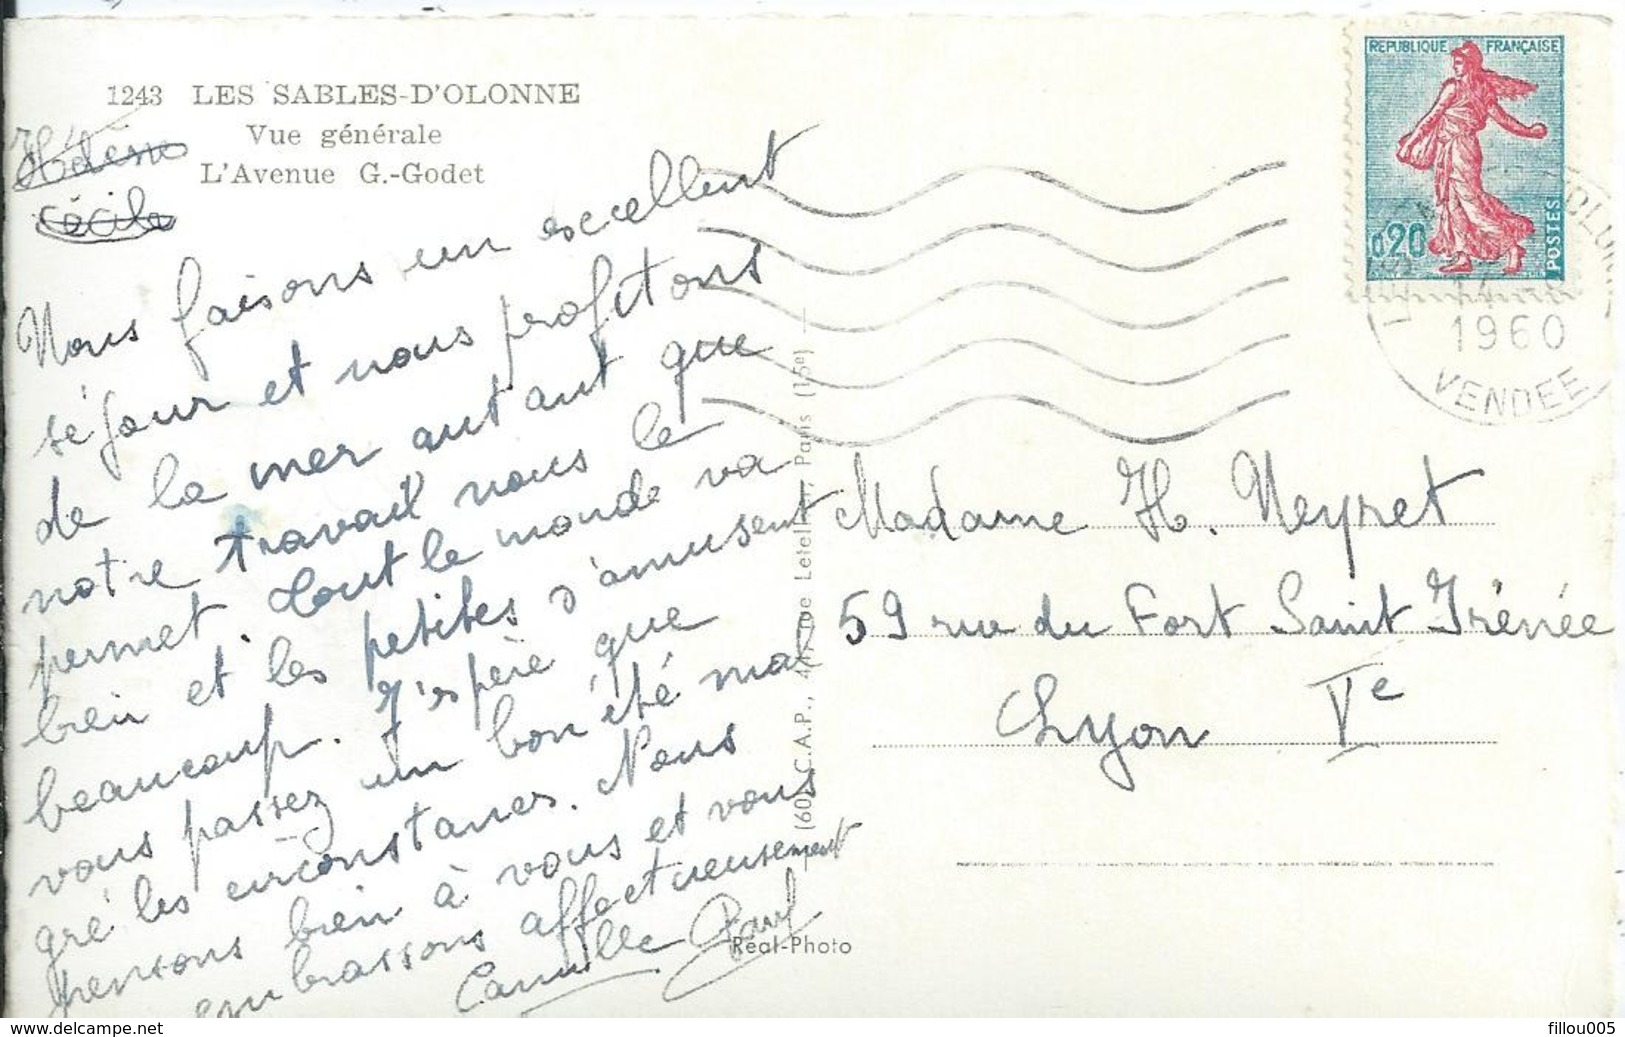 1243 LES SABLES-D'OLONNE
Vue générale
L'Avenue G.-Godet
Hélène
Cécile
Nous faisons un excellent
séjour et nous profitons
de la mer autant que
notre travail nous le
permet. Tout le monde va
bien et les petites s'amusent
beaucoup. J'espère que
vous passez un bon été mal
gré les circonstances. Nous
pensons bien à vous et vous
embrassons affectueusement
Camille Paul
REPUBLIQUE FRANÇAISE
0,20
POSTES
1960
VENDEE
Madame H. Neyret
59 rue du Fort Saint Irénée
Lyon Ve
(60) C.A.P., rue Letellier, Paris (15e)
Réal-Photo
www.delcampe.net
fillou005